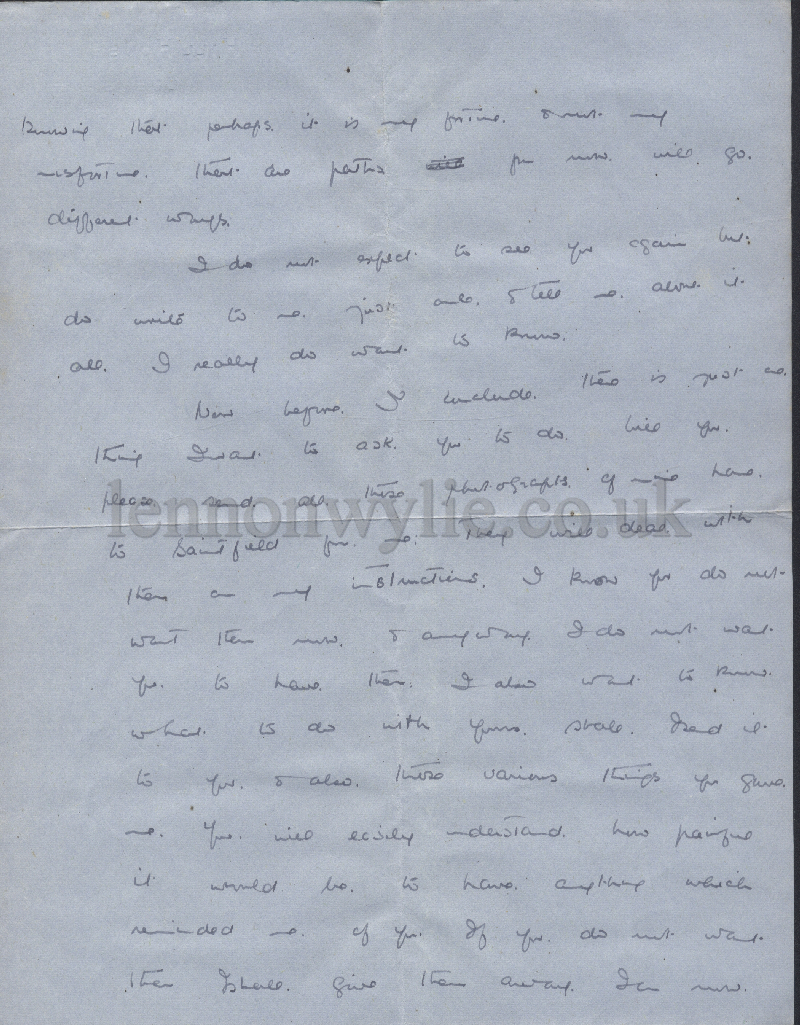 knowing that perhaps it is my fortune. & not my
misfortune. That our paths for now will go.
different ways.
I do not expect to see you again but
do write to me. just once. & tell me. about it
all. I really do want to know.
Now before I conclude. there is just one
thing I want to ask you to do. Will you.
please send all those photographs of mine home.
to Saintfield for me. They will deal with
them on my instructions. I know you do not
want them now. & anyway I do not want
you. to have them. I also want to know.
what to do with yours. shall I send it
to you. & also. those various things you gave
me. You will easily understand. how painful
it would be. to have anything which
reminded me. of you. If you do not want
them I shall give them away. I am now.
lennonwylie.co.uk